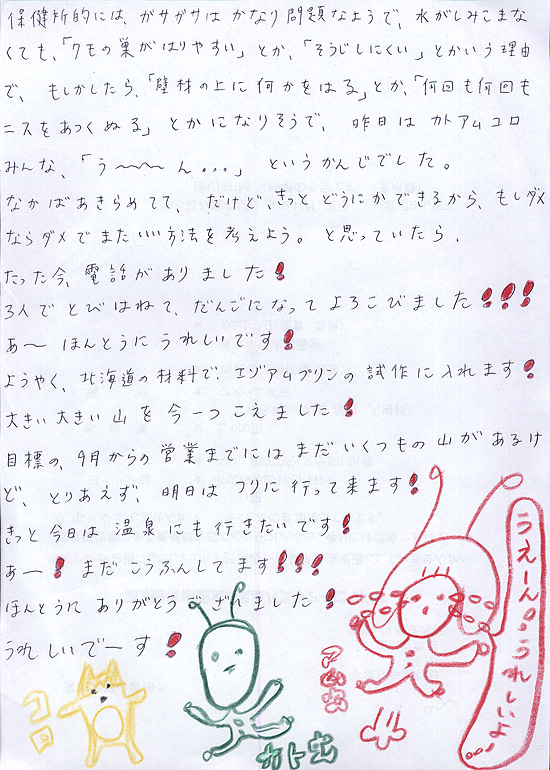 保健所的には、ガサガサはかなり問題なようで、水がしみこまな
くても、「クモの巣がはりやすい」とか、「そうじしにくい」とかいう理由
で、もしかしたら、「壁材の上に何かをはる」とか、「何回も何回も
ニスをあつくぬる」とかになりそうで、昨日はカトアムコロ
みんな、「う〜〜〜ん...」というかんじでした。
なかばあきらめてて、だけど、きっとどうにかできるから、もしダメ
ならダメでまたいい方法を考えよう。と思っていたら、
たった今、電話がありました!
3人でとびはねて、だんごになってよろこびました!!!
あ〜ほんとうにうれしいです!
ようやく、北海道の材料で、エゾアムプリンの試作に入れます!
大きい大きい山を今一つこえました!
目標の、9月からの営業までにはまだいくつもの山があるけ
ど、とりあえず、明日はつりに行って来ます!
きっと今日は温泉にも行きたいです!
あー!まだこうふんしてます!!!
ほんとうにありがとうございました!
うれしいでーす!
コロ
カト
アム
うえーん。うれしいよー...